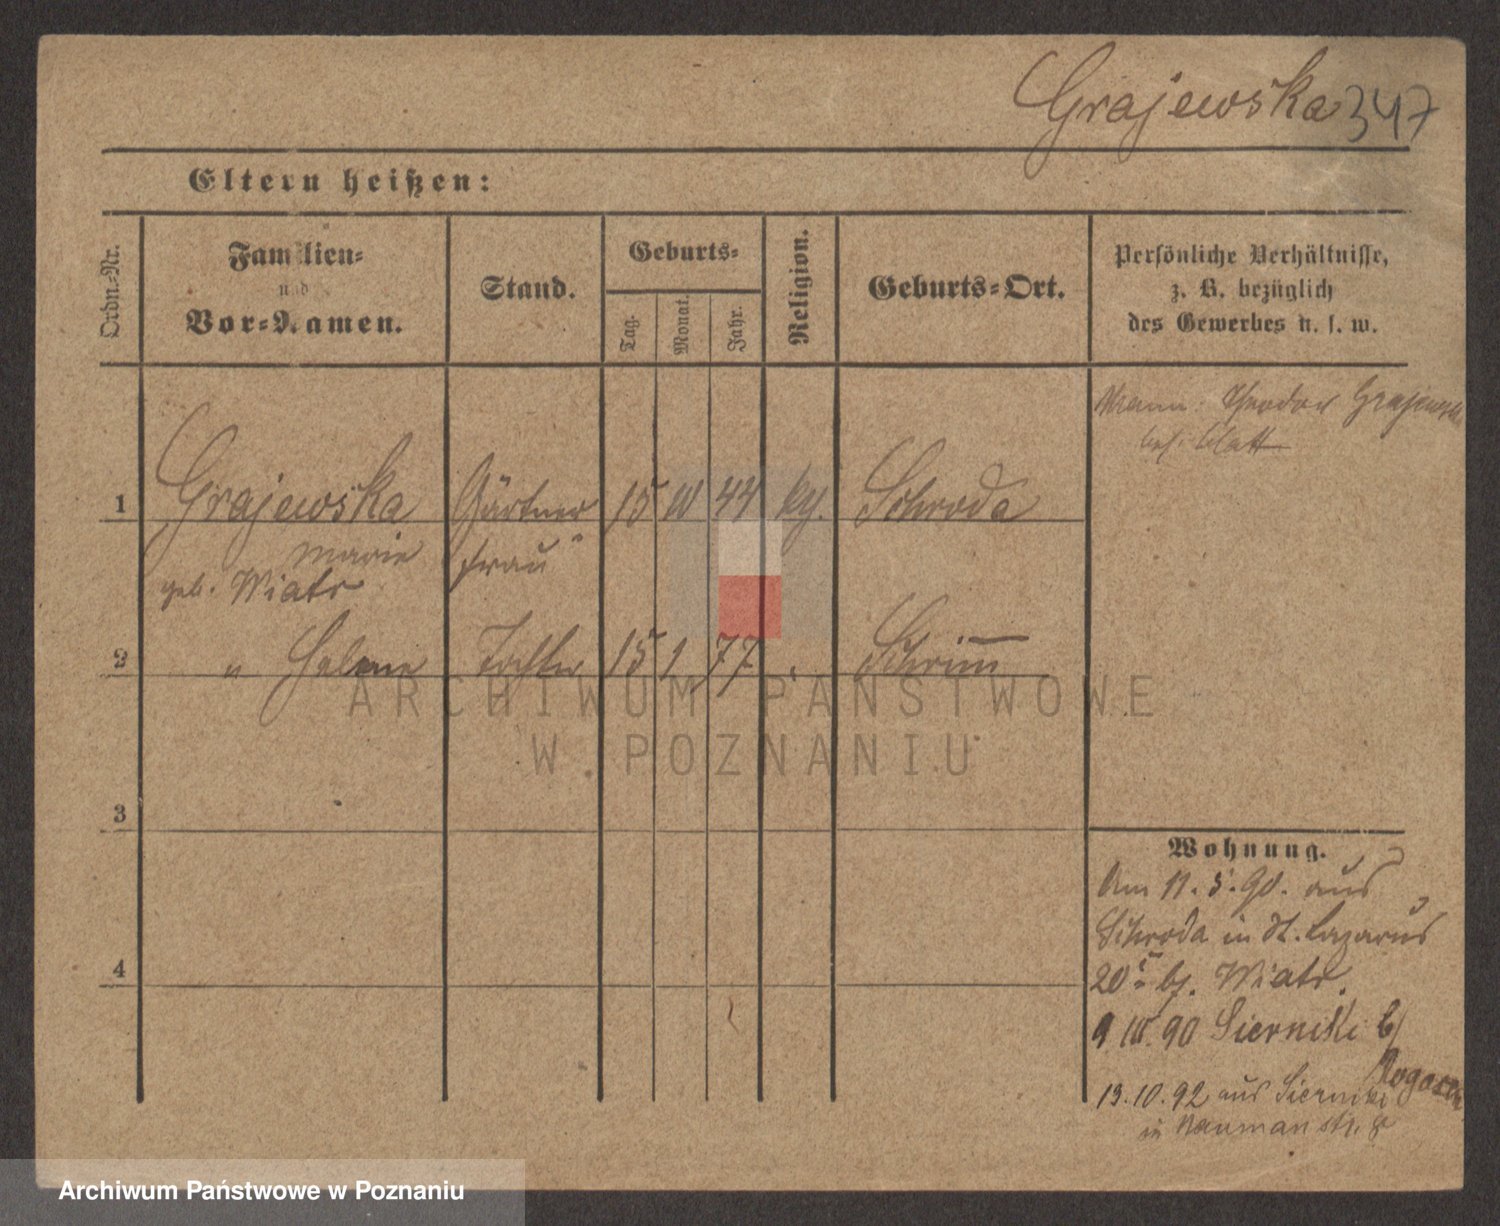 Grajewska 347
Eltern heißen:
Ordn.-Nr.
Familien-
und
Vor-Namen.
Stand.
Geburts-
Tag.
Monat.
Jahr.
Religion.
Geburts-Ort.
Persönliche Verhältnisse,
z. B. bezüglich
des Gewerbes u. s. w.
Mann: Theodor Grajewski
bes. Blatt
1 Grajewska Gärtner 15 44 kth. Schroda
Marie frau
geb. Wiatr
2 " Helene Tochter 15 1 77 " Schrimm
3
4
Wohnung.
Am 11. 5. 90. aus
Schroda in St. Lazarus
20 bj. Wiatr.
9. 90 Siernikki b/
Rogasen
13. 10. 92 aus Siernikki
in Naumanstr. 8
ARCHIWUM PAŃSTWOWE
W POZNANIU
Archiwum Państwowe w Poznaniu